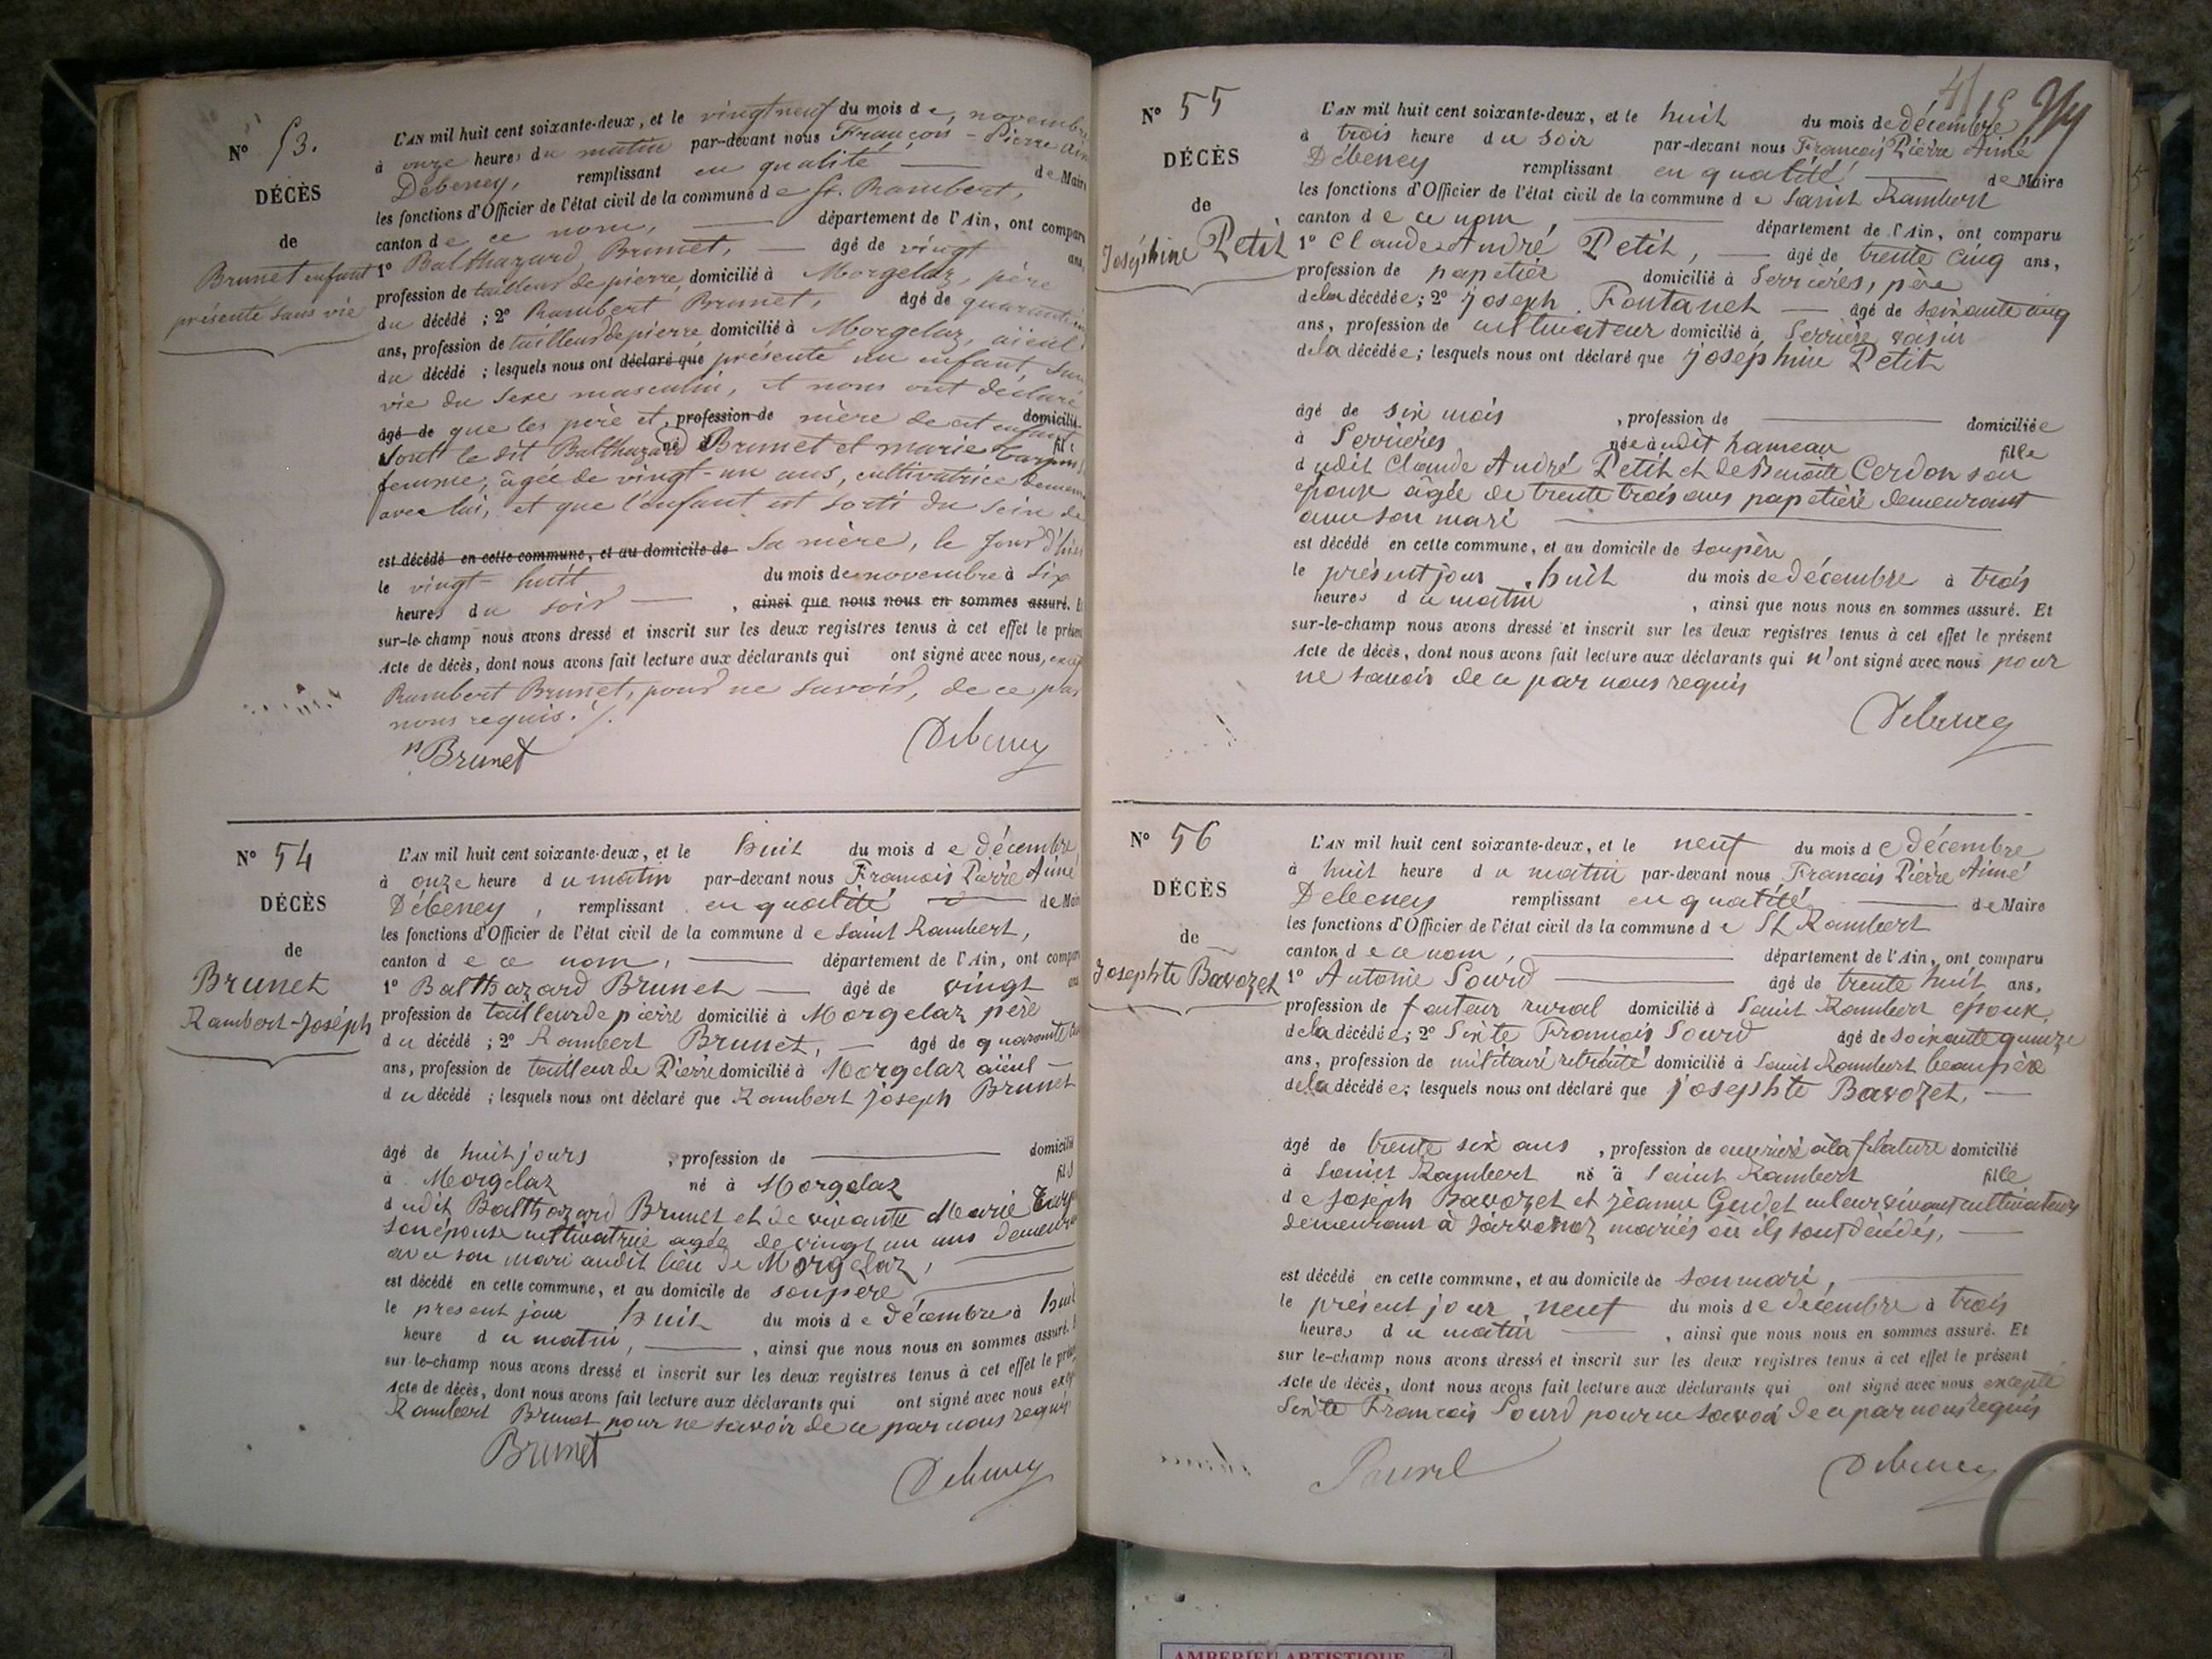 N° 53.
DÉCÈS
de
Brunet enfant
présenté sans vie
L'AN mil huit cent soixante-deux, et le vingt neuf du mois de novembre
à onze heures du matin par-devant nous François-Pierre
Débeney, remplissant en qualité de Maire
les fonctions d'Officier de l'état civil de la commune de St. Rambert,
canton de ce nom, département de l'Ain, ont comparu
1° Balthazard Brunet, âgé de vingt ans,
profession de tailleur de pierre, domicilié à Morgelaz, père
du décédé ; 2° Rambert Brunet, âgé de
ans, profession de tailleur de pierre domicilié à Morgelaz, aïeul
du décédé ; lesquels nous ont déclaré que présenté un enfant, sans
vie du sexe masculin, et nous ont déclaré
âgé de que les père et, profession de mère de cet enfant domicilié
sont le dit Balthazard né à Brunet et marie fil
femme, âgée de vingt-un ans, cultivatrice
avec lui, et que l'enfant est sorti du sein de
est décédé en cette commune, et au domicile de sa mère, le jour d'hier
le vingt-huit du mois de novembre à six
heures du soir, ainsi que nous nous en sommes assuré.
sur-le-champ nous avons dressé et inscrit sur les deux registres tenus à cet effet le présent
Acte de décès, dont nous avons fait lecture aux déclarants qui ont signé avec nous,
Rambert Brunet, pour ne savoir, de ce par
nous requis.
Brunet Debeney
N° 54
DÉCÈS
de
Brunet
Rambert-Joséph
L'AN mil huit cent soixante-deux, et le huit du mois de Décembre
à onze heure du matin par-devant nous Francois Pierre Aimé
Débeney, remplissant en qualité de Maire
les fonctions d'Officier de l'état civil de la commune de Saint Rambert,
canton de ce nom, département de l'Ain, ont comparu
1° Balthazard Brunet âgé de vingt ans
profession de tailleur de pierre domicilié à Morgelaz père
du décédé ; 2° Rambert Brunet, âgé de quarante
ans, profession de tailleur de Pierre domicilié à Morgelaz aïeul
du décédé ; lesquels nous ont déclaré que Rambert joseph Brunet
âgé de huit jours, profession de domicilié
à Morgelaz né à Morgelaz fils
dudit Balthazard Brunet et de vivante Marie
son épouse cultivatrice agée de vingt un ans
avec son mari audit lieu de Morgelaz,
est décédé en cette commune, et au domicile de son père
le présent jour huit du mois de Décembre à huit
heure du matin, ainsi que nous nous en sommes assuré.
sur-le-champ nous avons dressé et inscrit sur les deux registres tenus à cet effet le présent
Acte de décès, dont nous avons fait lecture aux déclarants qui ont signé avec nous
Rambert Brunet pour ne savoir de ce par nous requis
Brunet
Debeney
41
N° 55
DÉCÈS
de
Joséphine Petit
L'AN mil huit cent soixante-deux, et le huit du mois de décembre
à trois heure du soir par-devant nous Francois Pierre Aimé
Débeney remplissant en qualité de Maire
les fonctions d'Officier de l'état civil de la commune de Saint Rambert
canton de ce nom, département de l'Ain, ont comparu
1° Claude André Petit, âgé de trente cinq ans,
profession de papetier domicilié à Serrières, père
de la décédée ; 2° Joseph Fontanet âgé de soixante cinq
ans, profession de cultivateur domicilié à Serrière voisin
de la décédée ; lesquels nous ont déclaré que joséphine Petit
âgé de six mois, profession de domiciliée
à Serrières née audit hameau fille
dudit Claude André Petit et de Benoite Cerdon son
épouse âgée de trente trois ans papetière demeurant
avec son mari
est décédé en cette commune, et au domicile de son père
le présent jour huit du mois de décembre à trois
heures du matin, ainsi que nous nous en sommes assuré. Et
sur-le-champ nous avons dressé et inscrit sur les deux registres tenus à cet effet le présent
Acte de décès, dont nous avons fait lecture aux déclarants qui n'ont signé avec nous pour
ne savoir de ce par nous requis
Debeney
N° 56
DÉCÈS
de
Josephte Bavozet
L'AN mil huit cent soixante-deux, et le neuf du mois de Décembre
à huit heure du matin par-devant nous Francois Pierre Aimé
Debeney remplissant en qualité de Maire
les fonctions d'Officier de l'état civil de la commune de St Rambert
canton de ce nom, département de l'Ain, ont comparu
1° Antoine Sourd âgé de trente huit ans,
profession de facteur rural domicilié à Saint Rambert époux
de la décédée ; 2° Sixte Francois Sourd âgé de soixante quinze
ans, profession de militaire retraité domicilié à Saint Rambert beaupère
de la décédée ; lesquels nous ont déclaré que josephte Bavozet,
âgé de trente six ans, profession de ouvrière à la filature domicilié
à Saint Rambert né à Saint Rambert fille
de Joseph Bavozet et jeanne Gudet en leur vivant cultivateurs
demeurant à mariés où ils sont décédés,
est décédé en cette commune, et au domicile de son mari,
le présent jour neuf du mois de décembre à trois
heures du matin, ainsi que nous nous en sommes assuré. Et
sur le-champ nous avons dressé et inscrit sur les deux registres tenus à cet effet le présent
Acte de décès, dont nous avons fait lecture aux déclarants qui ont signé avec nous excepté
Sixte Francois Sourd pour ne savoir de ce par nous requis
Sourd
Debeney
AMBERIEU ARTISTIQUE